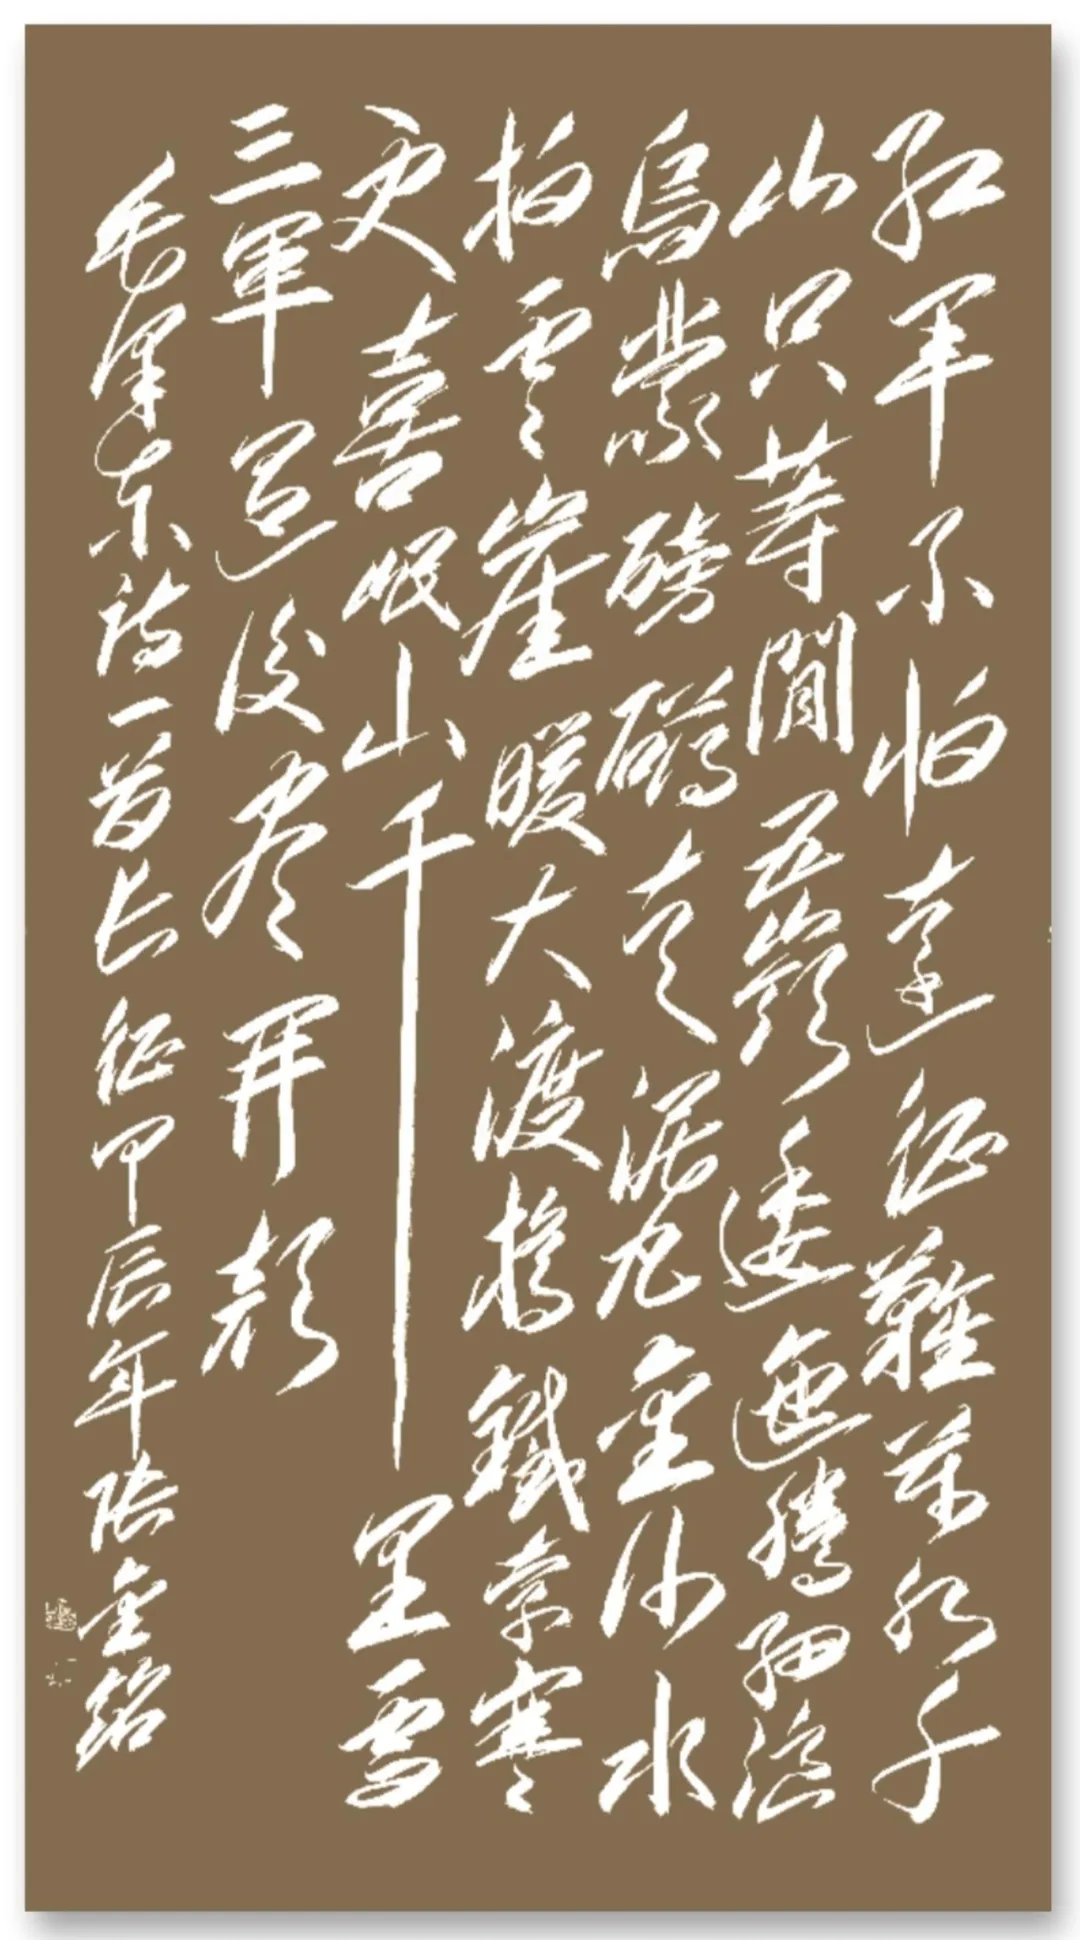 紅軍不怕遠征難萬水千
山只等閒五嶺逶迤騰細浪
烏蒙磅礴走泥丸金沙水
拍雲崖暖大渡橋鐵索寒
更喜岷山千里雪
三軍過後盡開顏
毛澤東詩一首長征甲辰年張金紹